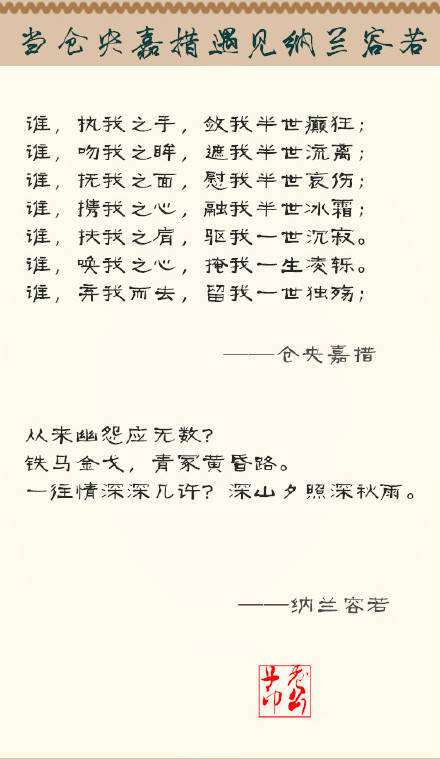 当仓央嘉措遇见纳兰容若
谁，执我之手，敛我半世癫狂；
谁，吻我之眸，遮我半世流离；
谁，抚我之面，慰我半世哀伤；
谁，携我之心，融我半世冰霜；
谁，扶我之肩，驱我一世沉寂。
谁，唤我之心，掩我一生凌轹。
谁，弃我而去，留我一世独殇；
——仓央嘉措
从来幽怨应无数？
铁马金戈，青冢黄昏路。
一往情深深几许？深山夕照深秋雨。
——纳兰容若